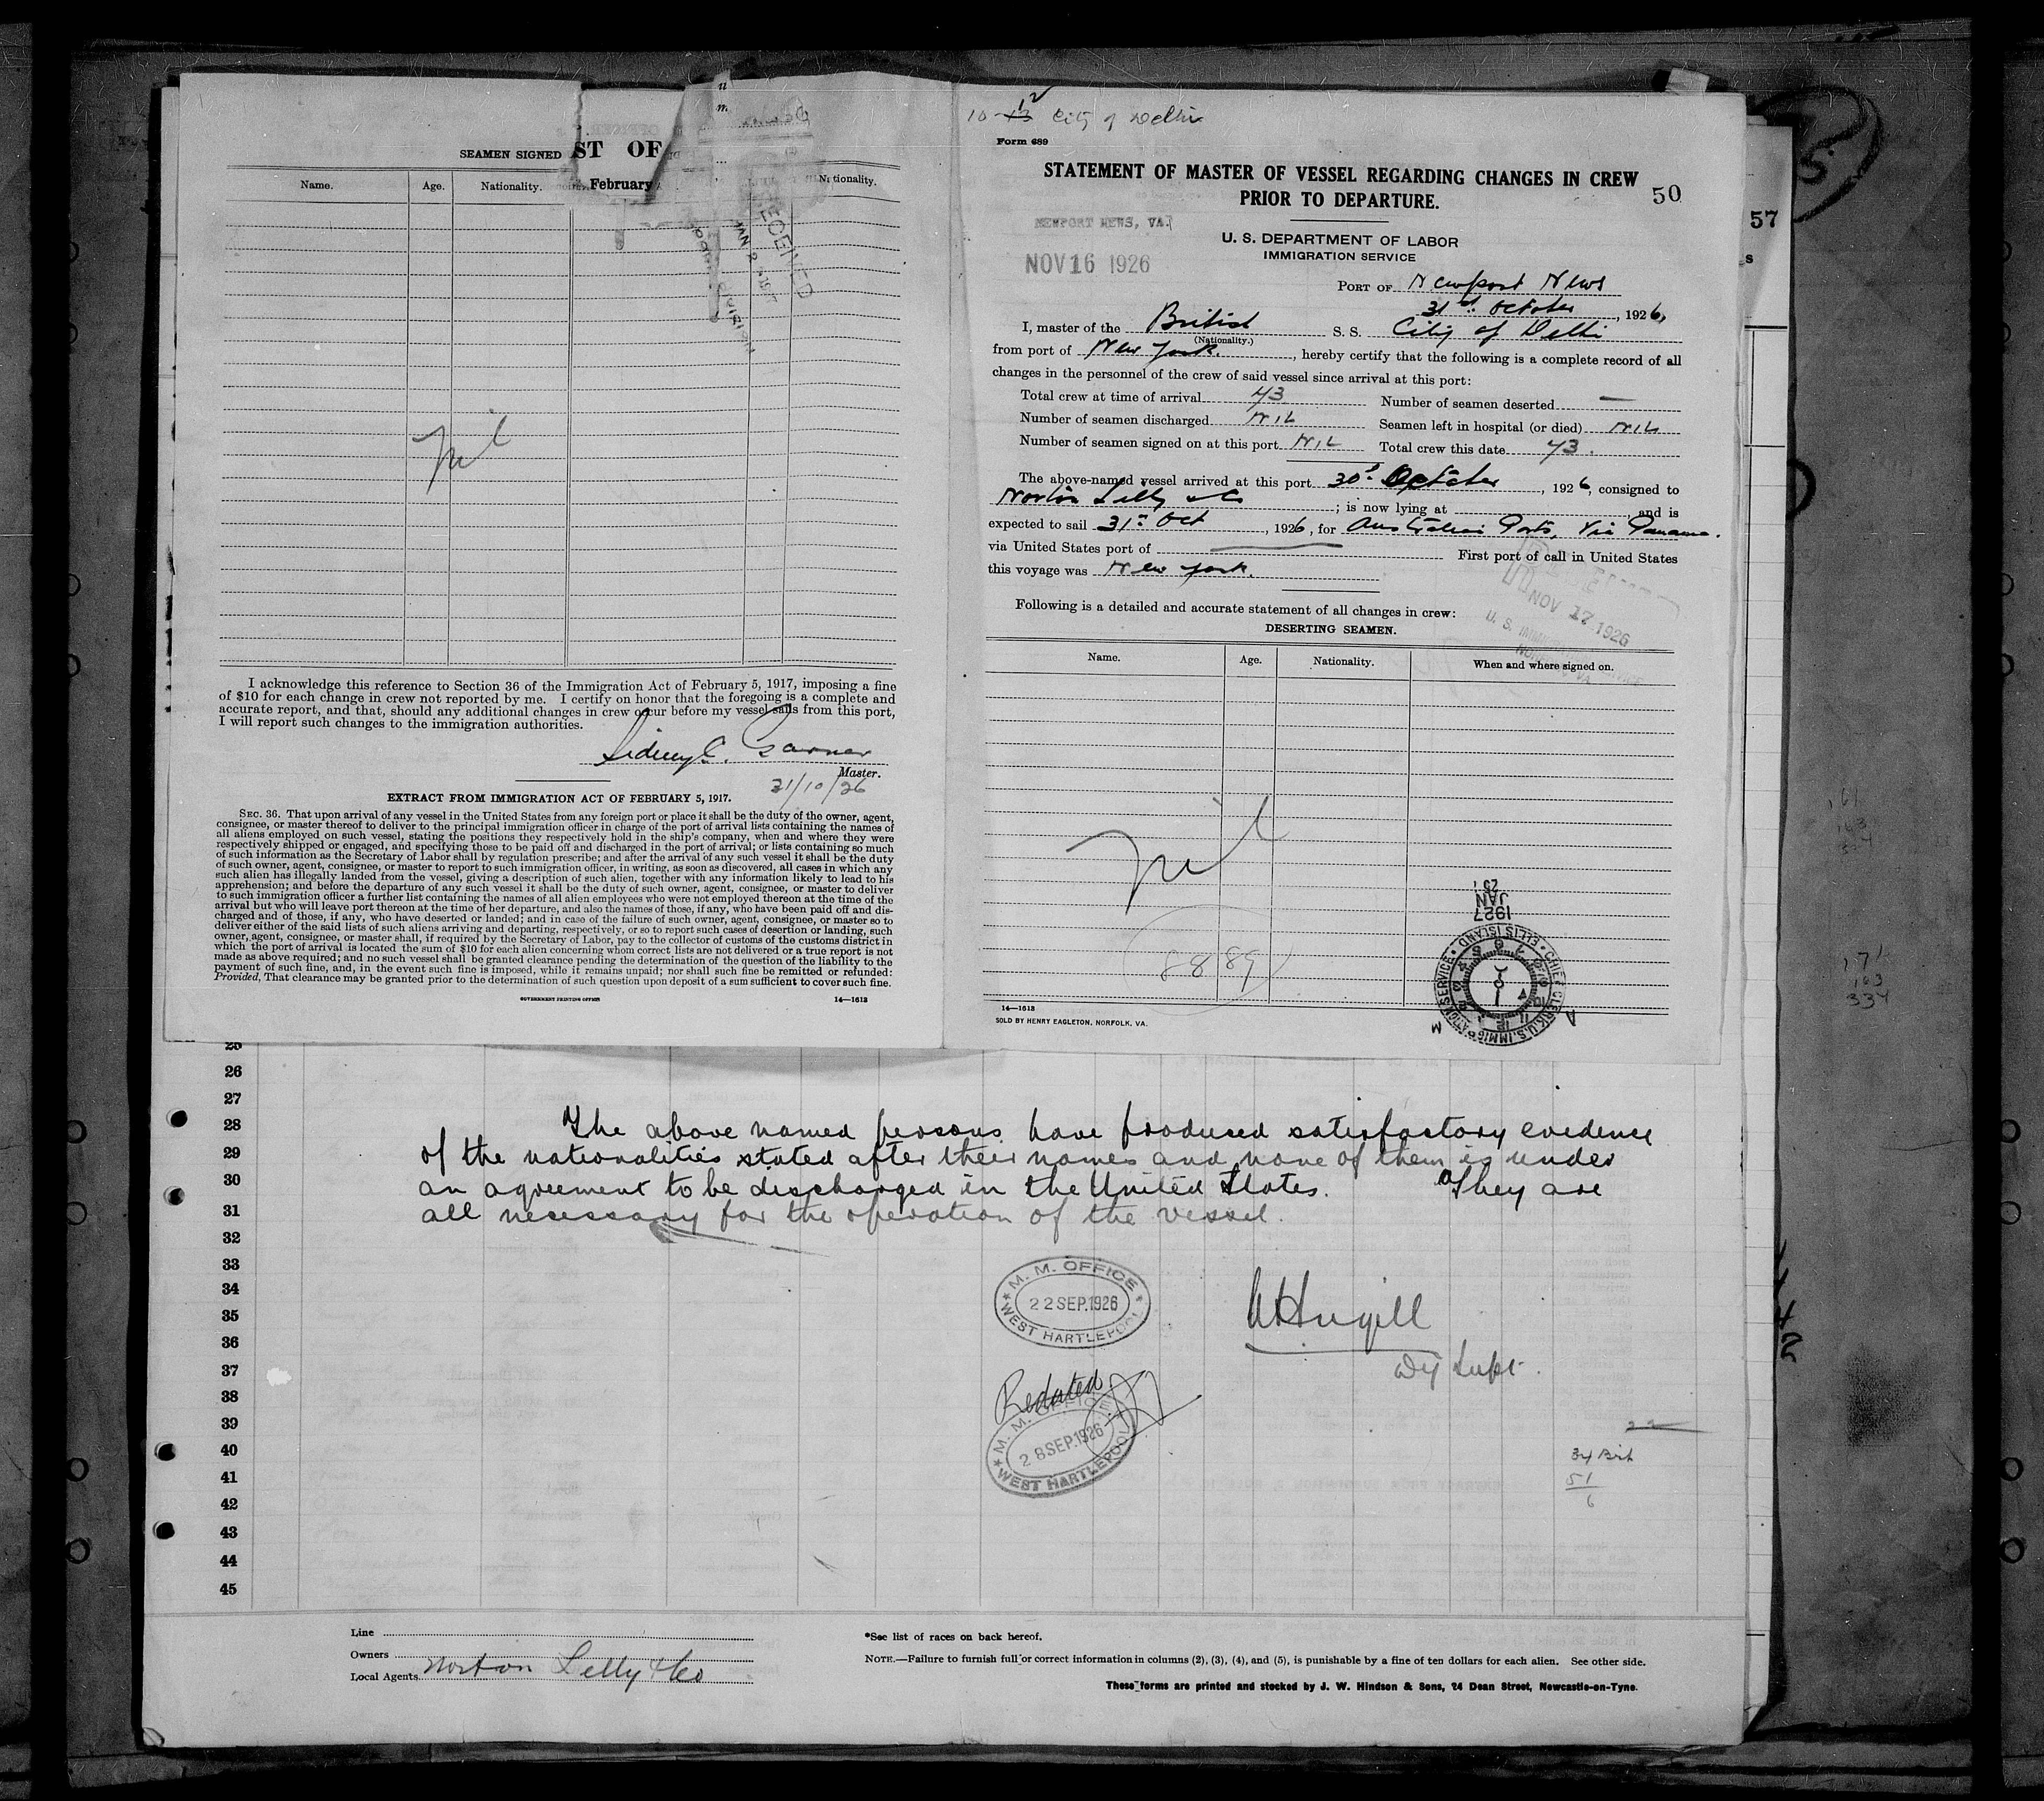 SEAMEN SIGNED
ST OF
February
Name. Age. Nationality. Nationality.
RECEIVED
nil
I acknowledge this reference to Section 36 of the Immigration Act of February 5, 1917, imposing a fine
of $10 for each change in crew not reported by me. I certify on honor that the foregoing is a complete and
accurate report, and that, should any additional changes in crew occur before my vessel sails from this port,
I will report such changes to the immigration authorities.
Sidney C.
Master.
31/10/26
EXTRACT FROM IMMIGRATION ACT OF FEBRUARY 5, 1917.
SEC. 36. That upon arrival of any vessel in the United States from any foreign port or place it shall be the duty of the owner, agent,
consignee, or master thereof to deliver to the principal immigration officer in charge of the port of arrival lists containing the names of
all aliens employed on such vessel, stating the positions they respectively hold in the ship's company, when and where they were
respectively shipped or engaged, and specifying those to be paid off and discharged in the port of arrival; or lists containing so much
of such information as the Secretary of Labor shall by regulation prescribe; and after the arrival of any such vessel it shall be the duty
of such owner, agent, consignee, or master to report to such immigration officer, in writing, as soon as discovered, all cases in which any
such alien has illegally landed from the vessel, giving a description of such alien, together with any information likely to lead to his
apprehension; and before the departure of any such vessel it shall be the duty of such owner, agent, consignee, or master to deliver
to such immigration officer a further list containing the names of all alien employees who were not employed thereon at the time of the
arrival but who will leave port thereon at the time of her departure, and also the names of those, if any, who have been paid off and dis-
charged and of those, if any, who have deserted or landed; and in case of the failure of such owner, agent, consignee, or master so to
deliver either of the said lists of such aliens arriving and departing, respectively, or so to report such cases of desertion or landing, such
owner, agent, consignee, or master shall, if required by the Secretary of Labor, pay to the collector of customs of the customs district in
which the port of arrival is located the sum of $10 for each alien concerning whom correct lists are not delivered or a true report is not
made as above required; and no such vessel shall be granted clearance pending the determination of the question of the liability to the
payment of such fine, and, in the event such fine is imposed, while it remains unpaid; nor shall such fine be remitted or refunded:
Provided, That clearance may be granted prior to the determination of such question upon deposit of a sum sufficient to cover such fine.
GOVERNMENT PRINTING OFFICE 14—1613
10-12 City of Delhi
Form 689
STATEMENT OF MASTER OF VESSEL REGARDING CHANGES IN CREW
PRIOR TO DEPARTURE.
50
57
NEWPORT NEWS, VA.
NOV 16 1926
U. S. DEPARTMENT OF LABOR
IMMIGRATION SERVICE
PORT OF Newport News
31st October, 1926,
I, master of the British S. S. City of Delhi
(Nationality.)
from port of New York., hereby certify that the following is a complete record of all
changes in the personnel of the crew of said vessel since arrival at this port:
Total crew at time of arrival 43 Number of seamen deserted —
Number of seamen discharged NIL Seamen left in hospital (or died) NIL
Number of seamen signed on at this port NIL Total crew this date 43.
The above-named vessel arrived at this port 30th October, 1926, consigned to
Norton Lilly & Co; is now lying at and is
expected to sail 31st Oct, 1926, for Australian Ports, Via Panama.
via United States port of — First port of call in United States
this voyage was New York.
NOV 17 1926
Following is a detailed and accurate statement of all changes in crew:
DESERTING SEAMEN.
Name. Age. Nationality. When and where signed on.
nil
8889
1927
JAN
CHIEF CLERK, U.S. IMMIGRATION SERVICE • ELLIS ISLAND
14—1613
SOLD BY HENRY EAGLETON, NORFOLK, VA.
25
26
27
28 The above named persons have produced satisfactory evidence
29 of the nationalities stated after their names and none of them is under
30 an agreement to be discharged in the United States. They are
31 all necessary for the operation of the vessel.
32
33
34
35
36
37
38
39
40
41
42
43
44
45
M. M. OFFICE
22 SEP.1926
WEST HARTLEPOOL
WHugill
Dy Supt.
Redated
M. M. OFFICE
28 SEP.1926
WEST HARTLEPOOL
34 Brit
51
6
Line
Owners
Local Agents Norton Lilly & Co
*See list of races on back hereof.
NOTE.—Failure to furnish full or correct information in columns (2), (3), (4), and (5), is punishable by a fine of ten dollars for each alien. See other side.
These forms are printed and stocked by J. W. Hindson & Sons, 24 Dean Street, Newcastle-on-Tyne.